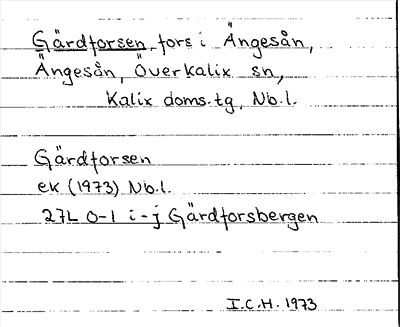 Gärdforsen, fors i Ängesån,
Ängesån, Överkalix sn,
Kalix doms.tg, Nb.l.
Gärdforsen
ek (1973) Nb.l.
27L 0-1 i-j Gärdforsbergen
I.C.H. 1973